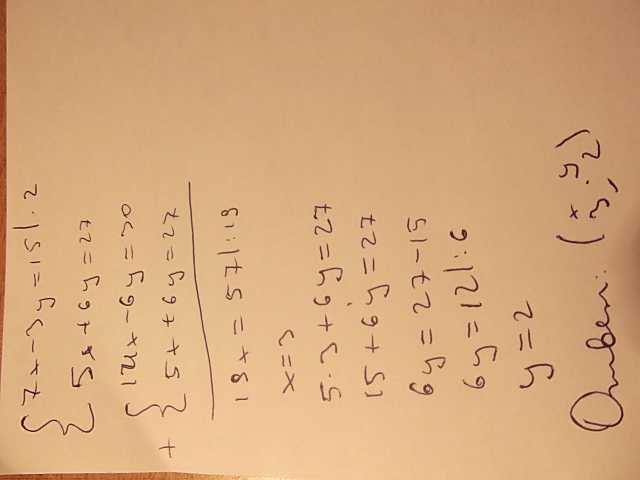 {7x-3y=15|·2
{5x+6y=27
{14x-6y=30
+ {5x+6y=27
19x=57|:19
x=3
5·3+6y=27
15+6y=27
6y=27-15
6y=12|:6
y=2
x y
Ответ: (3; 2)